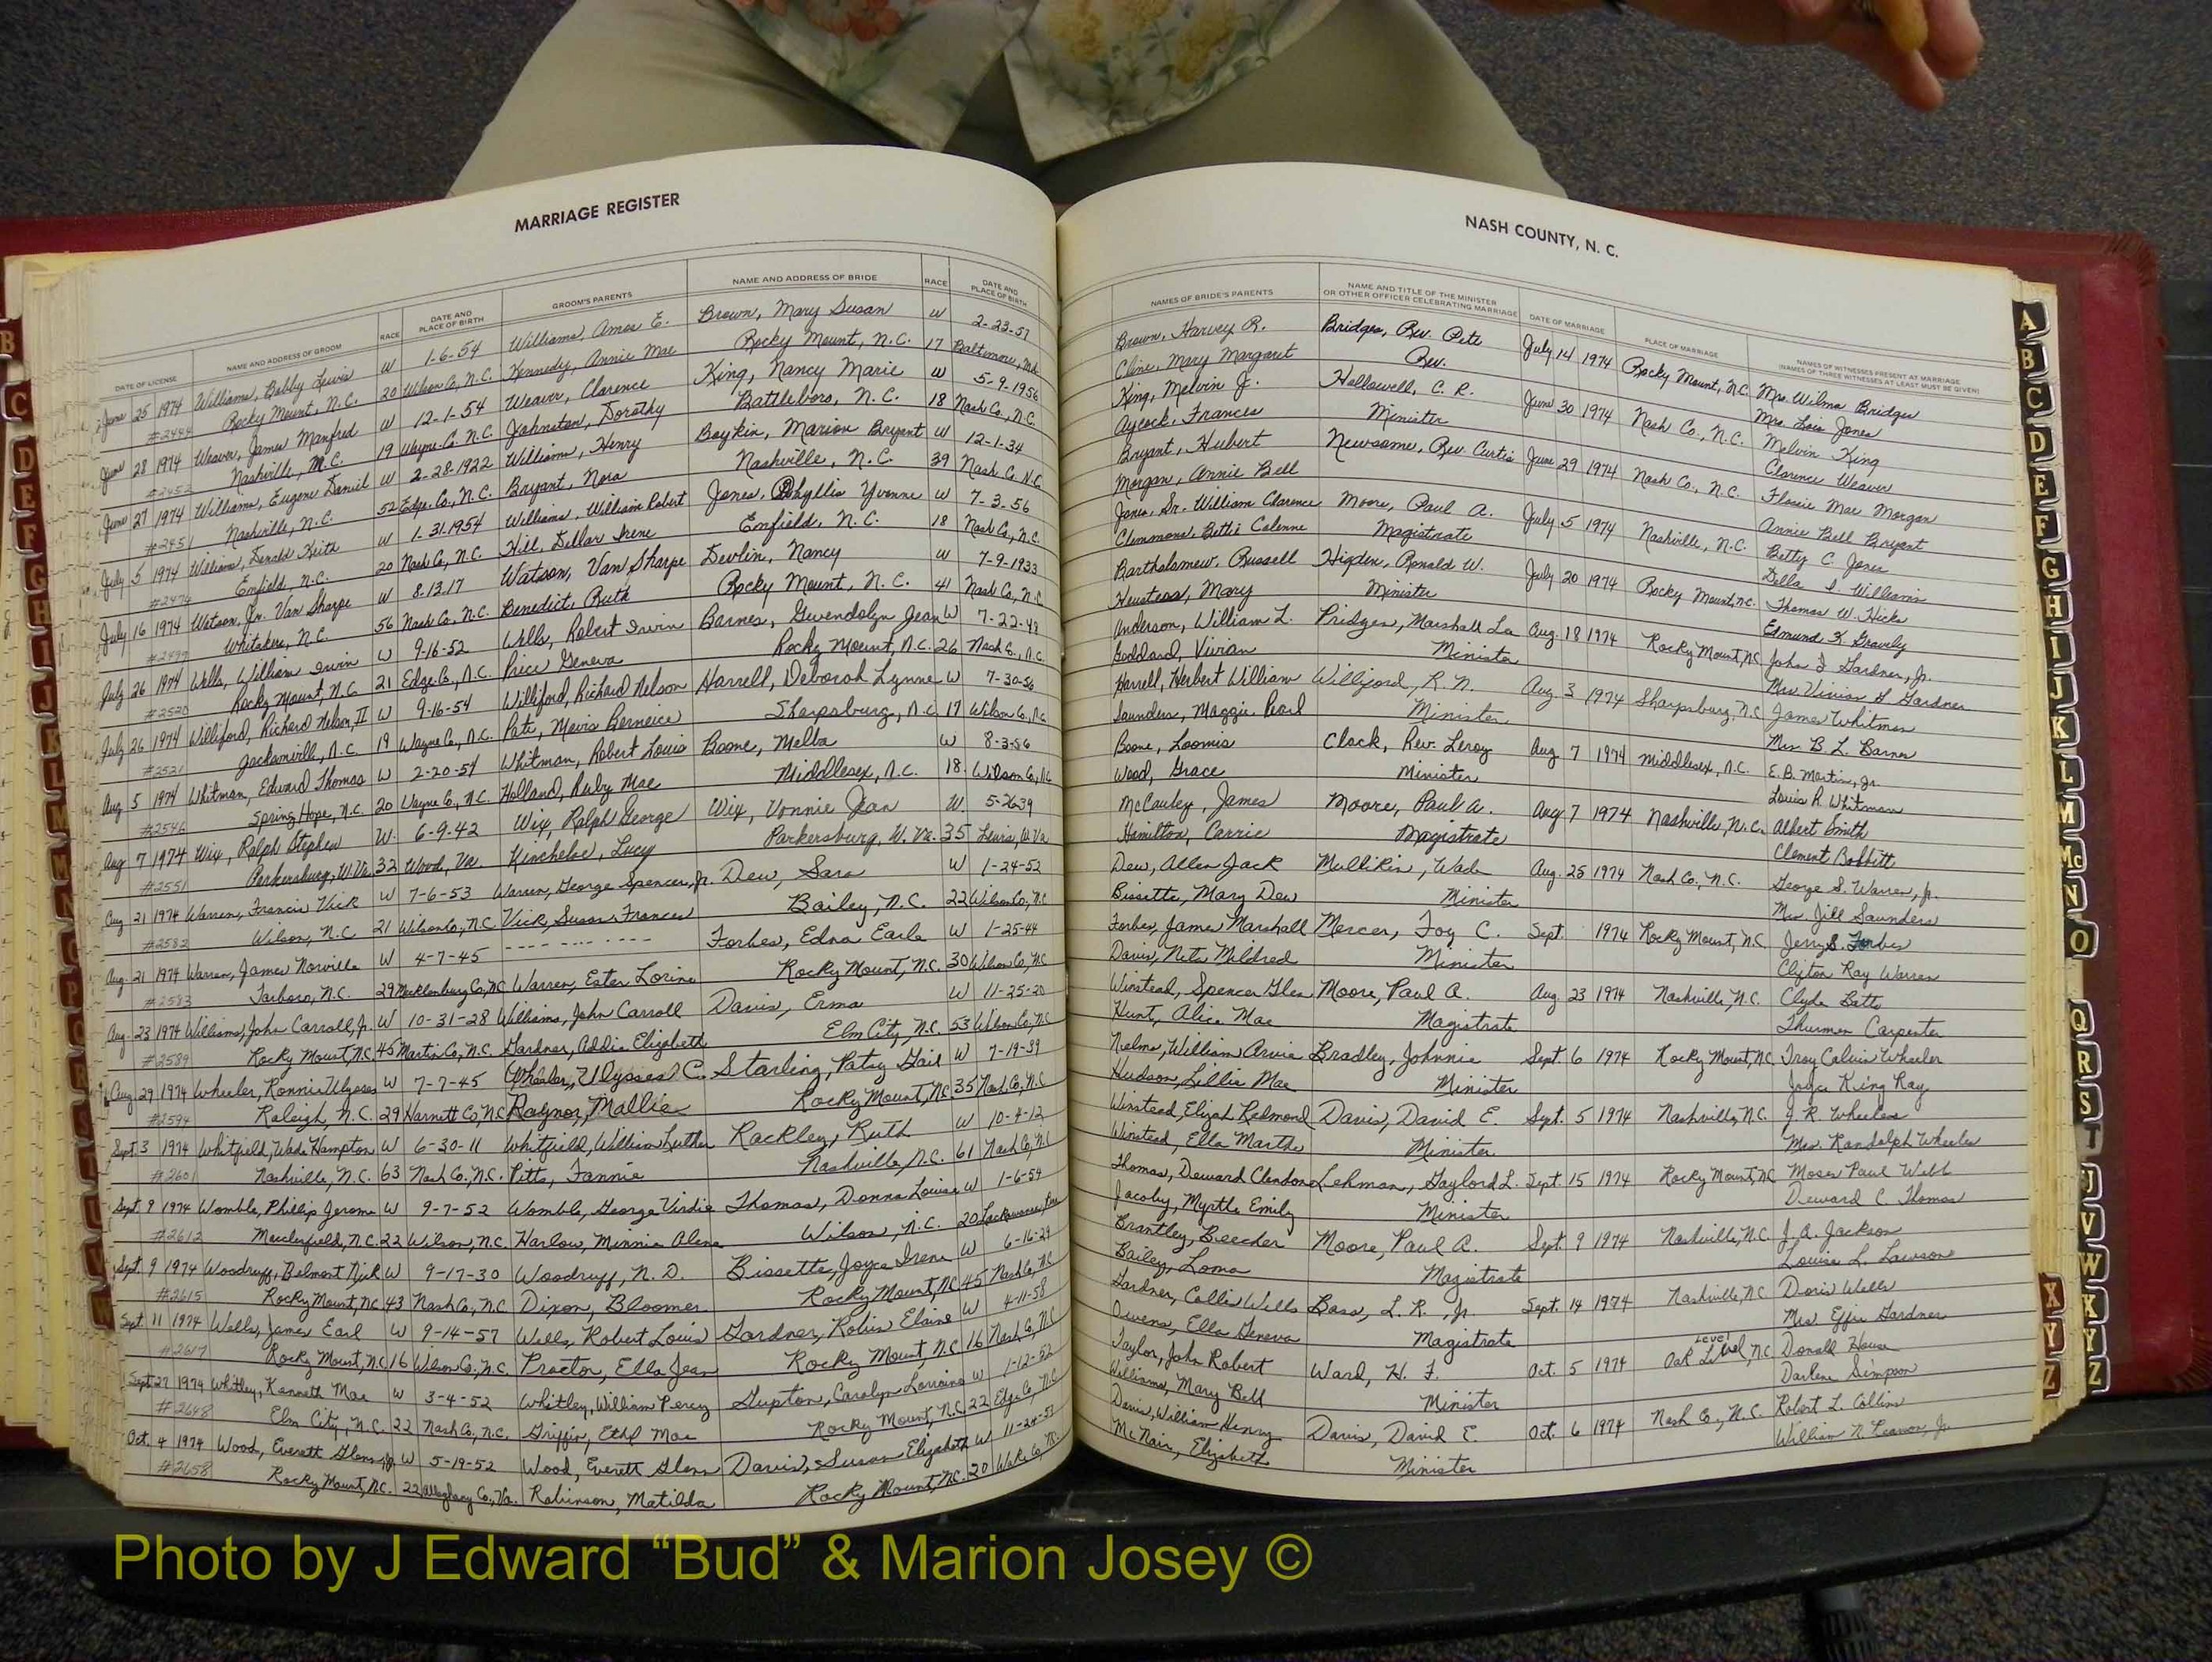 MARRIAGE REGISTER
DATE OF LICENSE NAME AND ADDRESS OF GROOM RACE DATE AND PLACE OF BIRTH GROOM'S PARENTS NAME AND ADDRESS OF BRIDE RACE DATE AND PLACE OF BIRTH
June 25 1974 Williams, Bobby Lewis W 1-6-54 Williams, Amos E. Brown, Mary Susan W 2-23-57
Rocky Mount, N.C. 20 Wilson Co., N.C. Kennedy, Annie Mae Rocky Mount, N.C. 17 Baltimore, Md.
June 28 1974 Weaver, James Manfred W 12-1-54 Weaver, Clarence King, Nancy Marie W 5-9-1956
#2452 Nashville, N.C. 19 Wayne Co. N.C. Johnston, Dorothy Battleboro, N.C. 18 Nash Co., N.C.
June 27 1974 Williams, Eugene Daniel W 2-28-1922 Williams, Henry Boykin, Marion Bryant W 12-1-34
#2451 Nashville, N.C. 52 Edge. Co., N.C. Bryant, Nora Nashville, N.C. 39 Nash Co. N.C.
July 5 1974 Williams, Donald Keith W 1-31-1954 Williams, William Robert Jones, Phyllis Yvonne W 7-3-56
#2474 Enfield, N.C. 20 Nash Co., N.C. Hill, Dellar Irene Enfield, N.C. 18 Nash Co., N.C.
July 16 1974 Watson, Jr. Van Sharpe W 8-13-17 Watson, Van Sharpe Devlin, Nancy W 7-9-1933
#2499 Whitakers, N.C. 56 Nash Co., N.C. Benedict, Ruth Rocky Mount, N.C. 41 Nash Co., N.C.
July 26 1974 Wells, William Irwin W 9-16-52 Wells, Robert Irwin Barnes, Gwendolyn Jean W 7-22-48
#2520 Rocky Mount, N.C. 21 Edge. Co., N.C. Price Geneva Rocky Mount, N.C. 26 Nash Co., N.C.
July 26 1974 Williford, Richard Nelson, II W 9-16-54 Williford, Richard Nelson Harrell, Deborah Lynne W 7-30-56
#2521 Jacksonville, N.C. 19 Wayne Co., N.C. Pate, Mavis Berneice Sharpsburg, N.C. 17 Wilson Co., N.C.
Aug 5 1974 Whitman, Edward Thomas W 2-20-54 Whitman, Robert Louis Boone, Melba W 8-3-56
#2546 Spring Hope, N.C. 20 Wayne Co., N.C. Holland, Ruby Mae Middlesex, N.C. 18 Wilson Co., N.C.
Aug 7 1974 Wix, Ralph Stephen W. 6-9-42 Wix, Ralph George Wix, Vonnie Jean W. 5-26-39
#2551 Parkersburg, W.Va. 32 Wood, Va. Kincheloe, Lucy Parkersburg, W. Va. 35 Lewis, W.Va.
Aug 21 1974 Warren, Francis Vick W 7-6-53 Warren, George Spencer, Jr. Dew, Sara W 1-24-52
#2582 Wilson, N.C. 21 Wilson Co., N.C. Vick, Susan Frances Bailey, N.C. 22 Wilson Co., N.C.
Aug. 21 1974 Warren, James Norville W 4-7-45 - - - - - - - - - Forbes, Edna Earle W 1-25-44
#2583 Tarboro, N.C. 29 Mecklenburg Co., N.C. Warren, Ester Lorine Rocky Mount, N.C. 30 Wilson Co., N.C.
Aug. 23 1974 Williams, John Carroll, Jr. W 10-31-28 Williams, John Carroll Davis, Erma W 11-25-20
#2589 Rocky Mount, N.C. 45 Martin Co., N.C. Gardner, Addie Elizabeth Elm City, N.C. 53 Wilson Co., N.C.
Aug 29 1974 Wheeler, Ronnie Ulysses W 7-7-45 Wheeler, Ulysses C. Starling, Patsy Gail W 7-19-39
#2594 Raleigh, N.C. 29 Harnett Co., N.C. Raynor, Mallie Rocky Mount, N.C. 35 Nash Co., N.C.
Sept. 3 1974 Whitfield, Wade Hampton W 6-30-11 Whitfield, William Luther Rackley, Ruth W 10-4-12
#2601 Nashville, N.C. 63 Nash Co., N.C. Pitts, Fannie Nashville, N.C. 61 Nash Co., N.C.
Sept. 9 1974 Womble, Phillip Jerome W 9-7-52 Womble, George Virdie Thomas, Donna Louise W 1-6-54
#2612 Macclesfield, N.C. 22 Wilson, N.C. Harlow, Minnie Alene Wilson, N.C. 20
Sept. 9 1974 Woodruff, Belmont Nick W 9-17-30 Woodruff, N. D. Bissette, Joyce Irene W 6-16-29
#2615 Rocky Mount, N.C. 43 Nash Co., N.C. Dixon, Bloomer Rocky Mount, N.C. 45 Nash Co., N.C.
Sept 11 1974 Wells, James Earl W 9-14-57 Wells, Robert Louis Gardner, Robin Elaine W 4-11-58
#2617 Rocky Mount, N.C. 16 Wilson Co., N.C. Proctor, Ella Jean Rocky Mount, N.C. 16 Nash Co., N.C.
Sept 27 1974 Whitley, Kenneth Mac W 3-4-52 Whitley, William Percy Gupton, Carolyn Lorraine W 1-12-52
#2648 Elm City, N.C. 22 Nash Co., N.C. Griffin, Ethel Mae Rocky Mount, N.C. 22 Edge Co., N.C.
Oct. 4 1974 Wood, Everett Glenn, Jr. W 5-19-52 Wood, Everett Glenn Davis, Susan Elizabeth W 11-24-53
#2658 Rocky Mount, N.C. 22 Alleghany Co., Va. Robinson, Matilda Rocky Mount, N.C. 20 Wake Co., N.C.
NASH COUNTY, N. C.
NAMES OF BRIDE'S PARENTS NAME AND TITLE OF THE MINISTER OR OTHER OFFICER CELEBRATING MARRIAGE DATE OF MARRIAGE PLACE OF MARRIAGE NAMES OF WITNESSES PRESENT AT MARRIAGE (NAMES OF THREE WITNESSES AT LEAST MUST BE GIVEN)
Brown, Harvey R. Bridges, Rev. Pete July 14 1974 Rocky Mount, N.C. Mrs. Wilma Bridges
Cline, Mary Margaret Rev. Mrs. Lois Jones
King, Melvin J. Hallowell, C. R. June 30 1974 Nash Co., N.C. Melvin King
Aycock, Frances Minister Clarence Weaver
Bryant, Hubert Newsome, Rev. Curtis June 29 1974 Nash Co., N.C. Flossie Mae Morgan
Morgan, Annie Bell Annie Bell Bryant
Jones, Sr. William Clarence Moore, Paul A. July 5 1974 Nashville, N.C. Betty C. Jones
Clemmons, Bettie Calenne Magistrate Della I. Williams
Bartholamew, Russell Higden, Ronald W. July 20 1974 Rocky Mount, N.C. Thomas W. Hicks
Heustess, Mary Minister Edmund K. Gravely
Anderson, William L. Pridges, Marshall Lee Aug. 18 1974 Rocky Mount, N.C. John I Gardner, Jr.
Goddard, Vivian Minister Mrs Vivian G Gardner
Harrell, Herbert William Williford, R. N. Aug. 3 1974 Sharpsburg, N.C. James Whitman
Saunders, Maggie Pearl Minister Mrs. B. L. Barnes
Boone, Loomis Clack, Rev. Leroy Aug 7 1974 Middlesex, N.C. E. B. Martin, Jr.
Wood, Grace Minister Louis R. Whitman
McCauley, James Moore, Paul A. Aug 7 1974 Nashville, N.C. Albert Smith
Hamilton, Carrie Magistrate Clement Bobbitt
Dew, Allen Jack Mullikin, Wade Aug. 25 1974 Nash Co., N.C. George S. Warren, Jr.
Bissette, Mary Dew Minister Mrs. Jill Saunders
Forbes, James Marshall Mercer, Foy C. Sept. 1974 Rocky Mount, N.C. Jerry S. Forbes
Davis, Neta Mildred Minister Clifton Ray Warren
Winstead, Spencer Glen Moore, Paul A. Aug. 23 1974 Nashville, N.C. Clyde Batts
Hunt, Alice Mae Magistrate Thurman Carpenter
Nelms, William Arvie Bradley, Johnnie Sept. 6 1974 Rocky Mount, N.C. Troy Calvin Wheeler
Hudson, Lillie Mae Minister Joyce King Ray
Winstead, Elijah Redmond Davis, David E. Sept. 5 1974 Nashville, N.C. J. R. Wheeless
Winstead, Ella Martha Minister Mrs. Randolph Wheeless
Thomas, Deward Clendon Lehman, Gaylord L. Sept. 15 1974 Rocky Mount, N.C. Moses Paul Webb
Jacoby, Myrtle Emily Minister Deward C Thomas
Brantley, Beecher Moore, Paul A. Sept. 9 1974 Nashville, N.C. J. A. Jackson
Bailey, Loma Magistrate Louise L. Lawson
Gardner, Collis Wells Bass, L. R., Jr. Sept. 14 1974 Nashville, N.C. Doris Wells
Owens, Ella Geneva Magistrate Mrs Effie Gardner
Taylor, John Robert Ward, H. F. Oct. 5 1974 Oak Level, N.C. Donald House
Williams, Mary Bell Minister Darlene Simpson
Davis, William Henry Davis, David E. Oct. 6 1974 Nash Co., N.C. Robert L. Collins
McNair, Elizabeth Minister
A
B
C
D
E
F
G
H
I
J
K
L
M
Mc
N
O
Q
R
S
T
V
W
X
Y
Z
Photo by J Edward “Bud” & Marion Josey ©